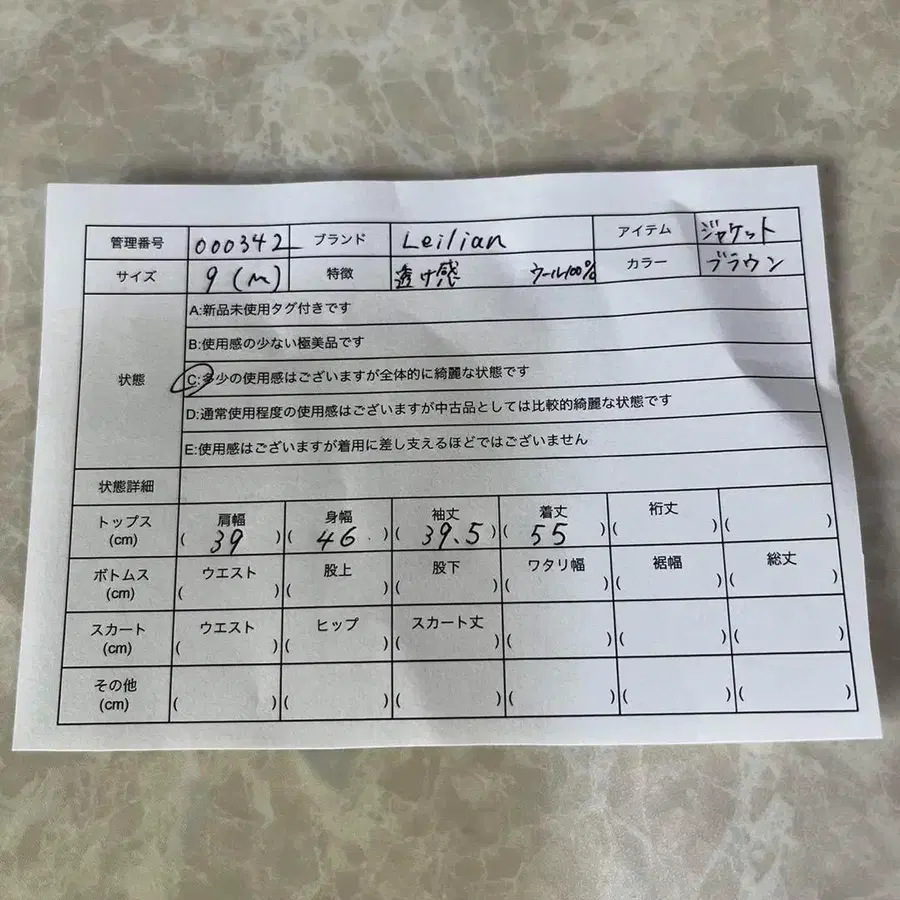 管理番号 000342 ブランド Leilian アイテム ジャケット
サイズ 9(M) 特徴 透け感 ウール100% カラー ブラウン
状態
A:新品未使用タグ付きです
B:使用感の少ない極美品です
C:多少の使用感はございますが全体的に綺麗な状態です
D:通常使用程度の使用感はございますが中古品としては比較的綺麗な状態です
E:使用感はございますが着用に差し支えるほどではございません
状態詳細
トップス 肩幅 身幅 袖丈 着丈 裄丈
(cm) ( 39 ) ( 46 ) ( 39.5 ) ( 55 ) ( ) ( )
ボトムス ウエスト 股上 股下 ワタリ幅 裾幅 総丈
(cm) ( ) ( ) ( ) ( ) ( ) ( )
スカート ウエスト ヒップ スカート丈
(cm) ( ) ( ) ( ) ( ) ( ) ( )
その他
(cm) ( ) ( ) ( ) ( ) ( ) ( )